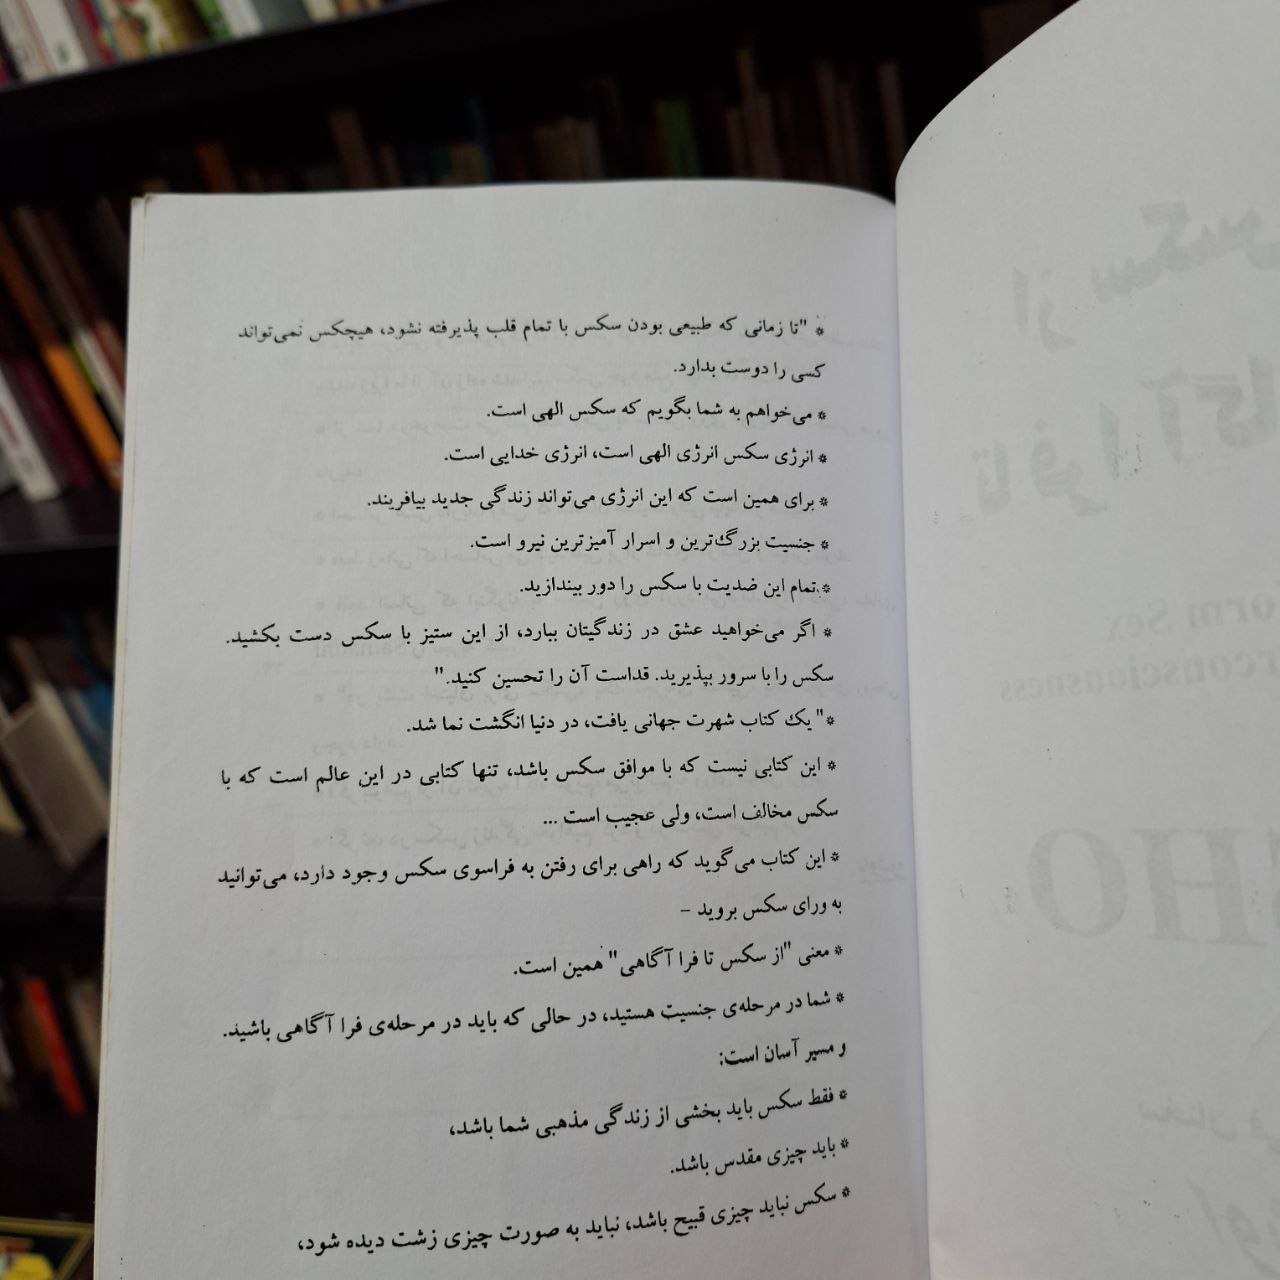 * "تا زمانی که طبیعی بودن سکس با تمام قلب پذیرفته نشود، هیچکس نمی‌تواند
کسی را دوست بدارد.
* می‌خواهم به شما بگویم که سکس الهی است.
* انرژی سکس انرژی الهی است، انرژی خدایی است.
* برای همین است که این انرژی می‌تواند زندگی جدید بیافریند.
* جنسیت بزرگ‌ترین و اسرار آمیزترین نیرو است.
* تمام این ضدیت با سکس را دور بیندازید.
* اگر می‌خواهید عشق در زندگیتان ببارد، از این ستیز با سکس دست بکشید.
سکس را با سرور بپذیرید. قداست آن را تحسین کنید."
* "یک کتاب شهرت جهانی یافت، در دنیا انگشت نما شد.
* این کتابی نیست که با موافق سکس باشد، تنها کتابی در این عالم است که با
سکس مخالف است، ولی عجیب است ...
* این کتاب می‌گوید که راهی برای رفتن به فراسوی سکس وجود دارد، می‌توانید
به ورای سکس بروید –
* معنی "از سکس تا فرا آگاهی" همین است.
* شما در مرحله‌ی جنسیت هستید، در حالی که باید در مرحله‌ی فرا آگاهی باشید.
و مسیر آسان است:
* فقط سکس باید بخشی از زندگی مذهبی شما باشد،
* باید چیزی مقدس باشد.
* سکس نباید چیزی قبیح باشد، نباید به صورت چیزی زشت دیده شود،